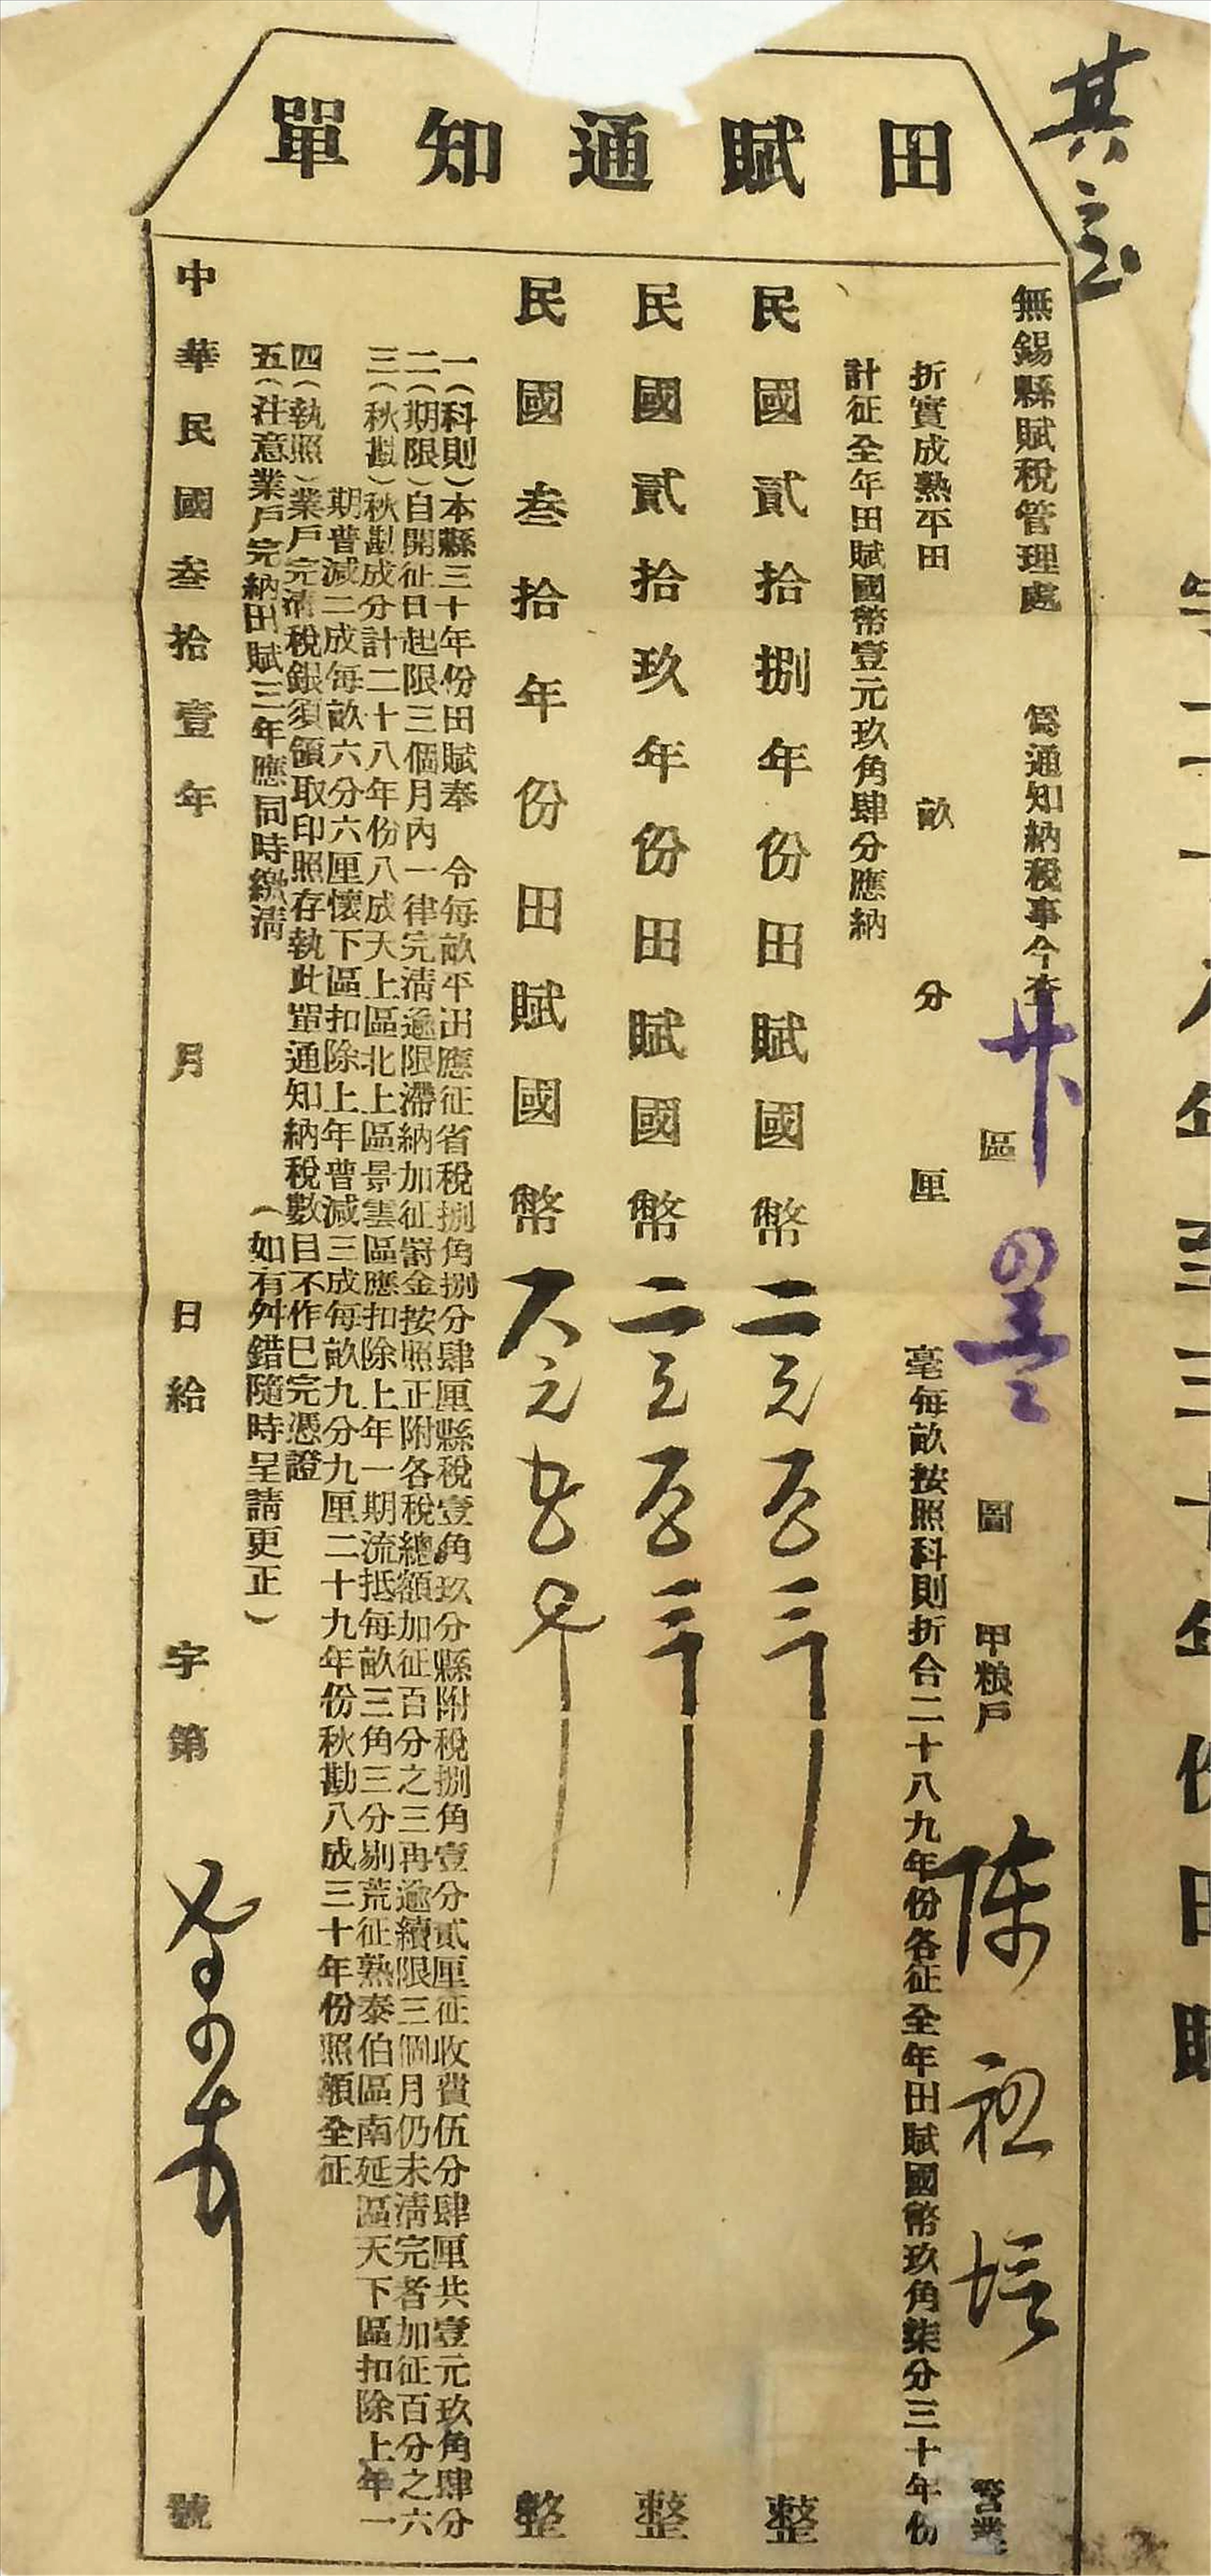 田賦通知單
其
無錫縣賦稅管理處 爲通知納稅事今查 區 圖 甲粮戶 陳祖培 營業
折實成熟平田 畝 分 厘 毫每畝按照科則折合二十八九年份各征全年田賦國幣玖角柒分三十年份
計征全年田賦國幣壹元玖角肆分應納
民國貳拾捌年份田賦國幣二元 整
民國貳拾玖年份田賦國幣二元 整
民國叁拾年份田賦國幣 元 整
一(科則)本縣三十年份田賦奉 令每畝平田應征省稅捌角捌分肆厘縣稅壹角玖分縣附稅捌角壹分貳厘征收費伍分肆厘共壹元玖角肆分
二(期限)自開征日起限三個月內一律完清逾限滯納加征罰金按照正附各稅總額加征百分之三再逾續限三個月仍未清完者加征百分之六
三(秋勘)秋勘成分計二十八年份八成天上區北上區景雲區應扣除上年一期流抵每畝三角三分剔荒征熟泰伯區南延區天下區扣除上年一
期普減二成每畝六分六厘懷下區扣除上年普減三成每畝九分九厘二十九年份秋勘八成三十年份照額全征
四(執照)業戶完清稅銀須領取印照存執此單通知納稅數目不作已完憑證
五(注意業戶完納田賦三年應同時繳清 (如有舛錯隨時呈請更正)
中華民國叁拾壹年 月 日給 字第 號
年份田賦